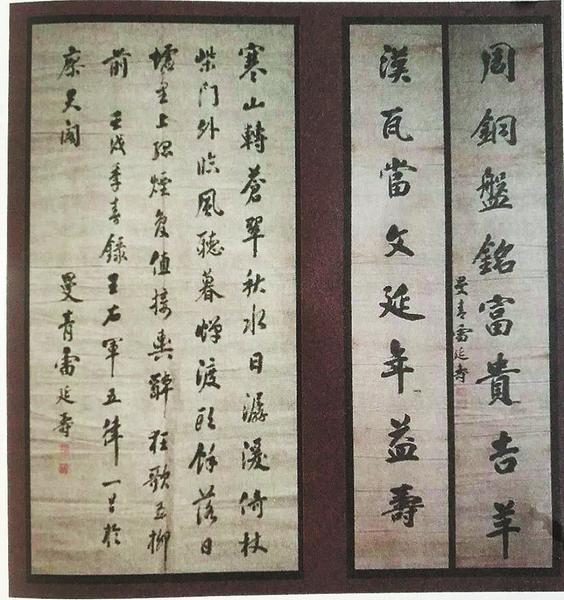 周銅盤銘富貴吉羊
曼青雷延壽
漢瓦當文延年益壽
寒山轉蒼翠秋水日潺湲倚杖
柴门外临風聽暮蟬渡頭餘落日
墟里上孤煙復值接輿醉狂歌五柳
前 壬戌季春錄王右軍五律一首於
天閣 曼青雷延壽